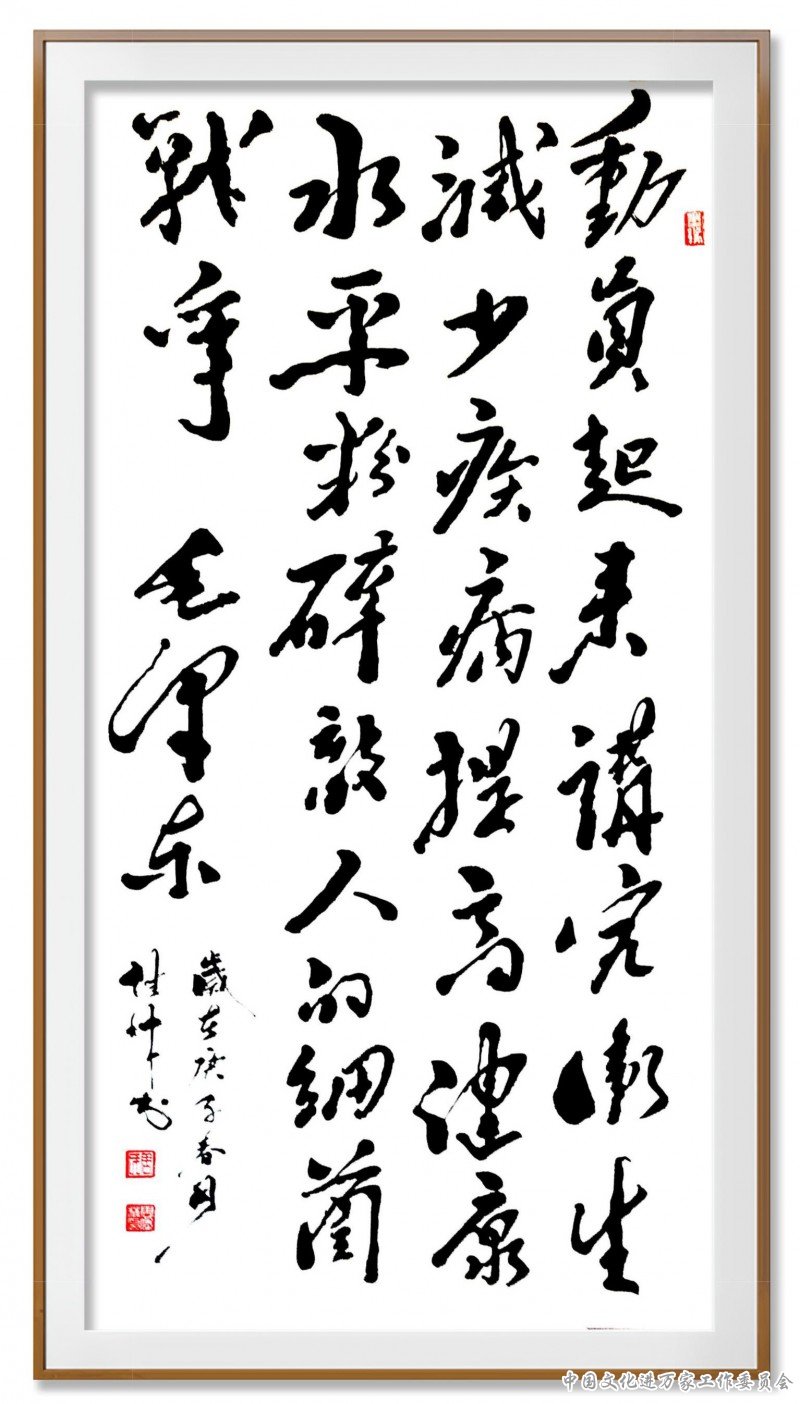 動員起来講究衛生
減少疾病提高健康
水平粉碎敵人的細菌
戰爭 毛澤東
歲在庚子春月
中国文化进万家工作委员会